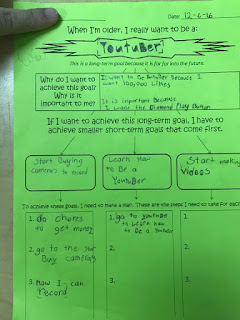 Date: 12-6-16
When I'm older, I really want to be a:
Youtuber!
This is a long-term goal because it is far far into the future.
Why do I want to achieve this goal? Why is it important to me?
I want to be Youtuber Because I want 100,000 Likes
It is important Because I want the Diamond Play Button
If I want to achieve this long-term goal, I have to
achieve smaller short-term goals that come first.
Start Buying cameras to record
Learn How to Be a Youtuber
Start making Videos
To achieve these goals, I need to make a plan. These are the steps I need to take for each
1. do chores to get money
2. go to the Buy cameras
3. now I can Record
1. go to youtube to learn how to Be a Youtuber
2.
3.
1.
2.
3.